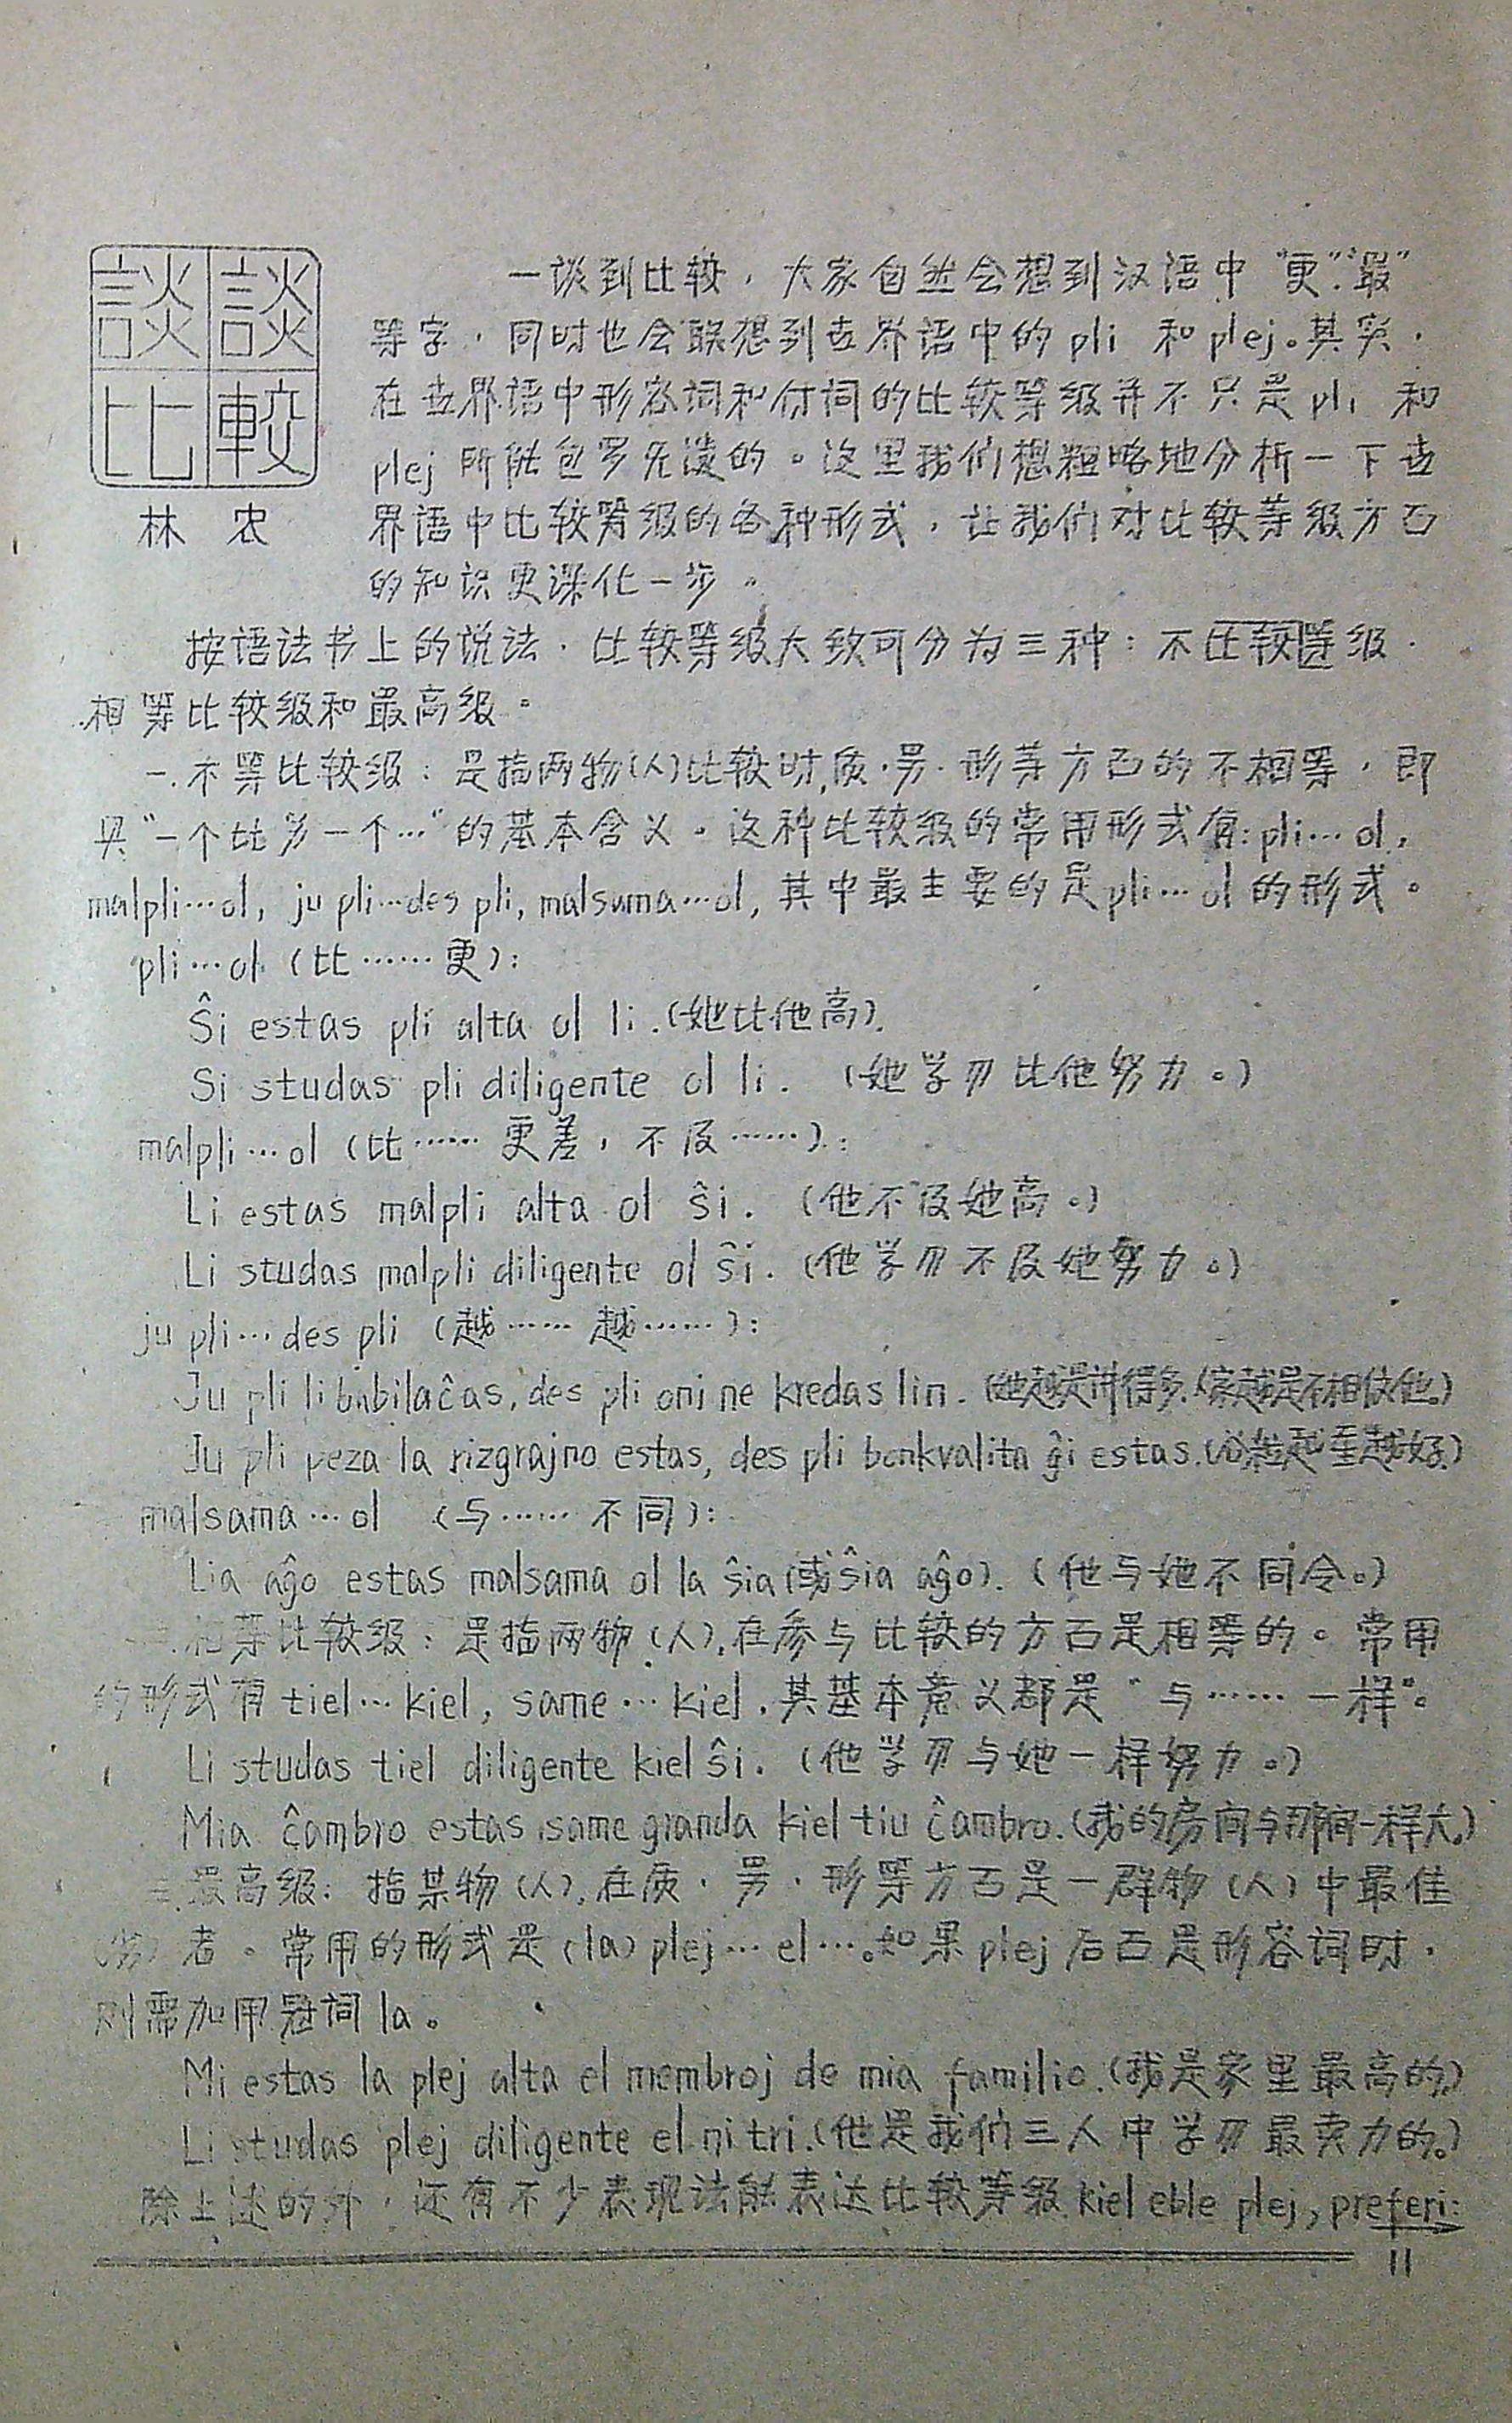 談談
比較
林 农
一谈到比较，大家自然会想到汉语中“更”“最”
等字，同时也会联想到世界语中的 pli 和 plej。其实，
在世界语中形容词和付词的比较等级并不只是 pli 和
plej 所能包罗无遗的。这里我们想粗略地分析一下世
界语中比较等级的各种形式，让我们对比较等级方面
的知识更深化一步。
按语法书上的说法，比较等级大致可分为三种：不比较等级，
相等比较级和最高级。
一.不等比较级：是指两物(人)比较时,质.另.形等方面的不相等，即
具“一个比另一个…”的基本含义。这种比较级的常用形式有:pli…ol,
malpli…ol, ju pli…des pli, malsama…ol, 其中最主要的是pli…ol的形式。
pli…ol (比……更):
Ŝi estas pli alta ol li.(她比他高).
Si studas pli diligente ol li. (她学习比他努力。)
malpli…ol (比……更差，不及……):
Li estas malpli alta ol ŝi. (他不及她高。)
Li studas malpli diligente ol ŝi. (他学习不及她努力。)
ju pli…des pli (越……越……):
Ju pli li babilaĉas, des pli oni ne kredas lin. (他越是讲得多,人家越是不相信他。)
Ju pli peza la rizgrajno estas, des pli bonkvalita ĝi estas.(谷粒越重越好.)
malsama…ol (与……不同):
Lia aĝo estas malsama ol la ŝia(或ŝia aĝo). (他与她不同令。)
二.相等比较级：是指两物(人),在参与比较的方面是相等的。常用
的形式有 tiel…kiel, same…kiel.其基本意义都是“与……一样”。
Li studas tiel diligente kiel ŝi. (他学习与她一样努力。)
Mia ĉambro estas same granda kiel tiu ĉambro.(我的房间与那间一样大.)
三.最高级：指某物(人),在质.另.形等方面是一群物(人)中最佳
(劣)者。常用的形式是(la) plej…el…。如果 plej 后面是形容词时，
则需加用冠词 la。
Mi estas la plej alta el membroj de mia familio.(我是家里最高的.)
Li studas plej diligente el ni tri.(他是我们三人中学习最卖力的。)
除上述的外，还有不少表现法能表达比较等级.kiel eble plej, preferi:
11